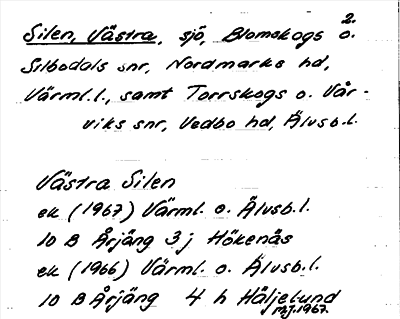 2.
Silen, Västra, sjö, Blomskogs o.
Silbodals snr, Nordmarks hd,
Värml.l., samt Torrskogs o. Vår-
viks snr, Vedbo hd, Älvsb.l.
Västra Silen
ek (1967) Värml. o. Älvsb.l.
10 B Årjäng 3 j Hökenäs
ek (1966) Värml. o. Älvsb.l.
10 B Årjäng 4 h Håljelund
MJ.1967.